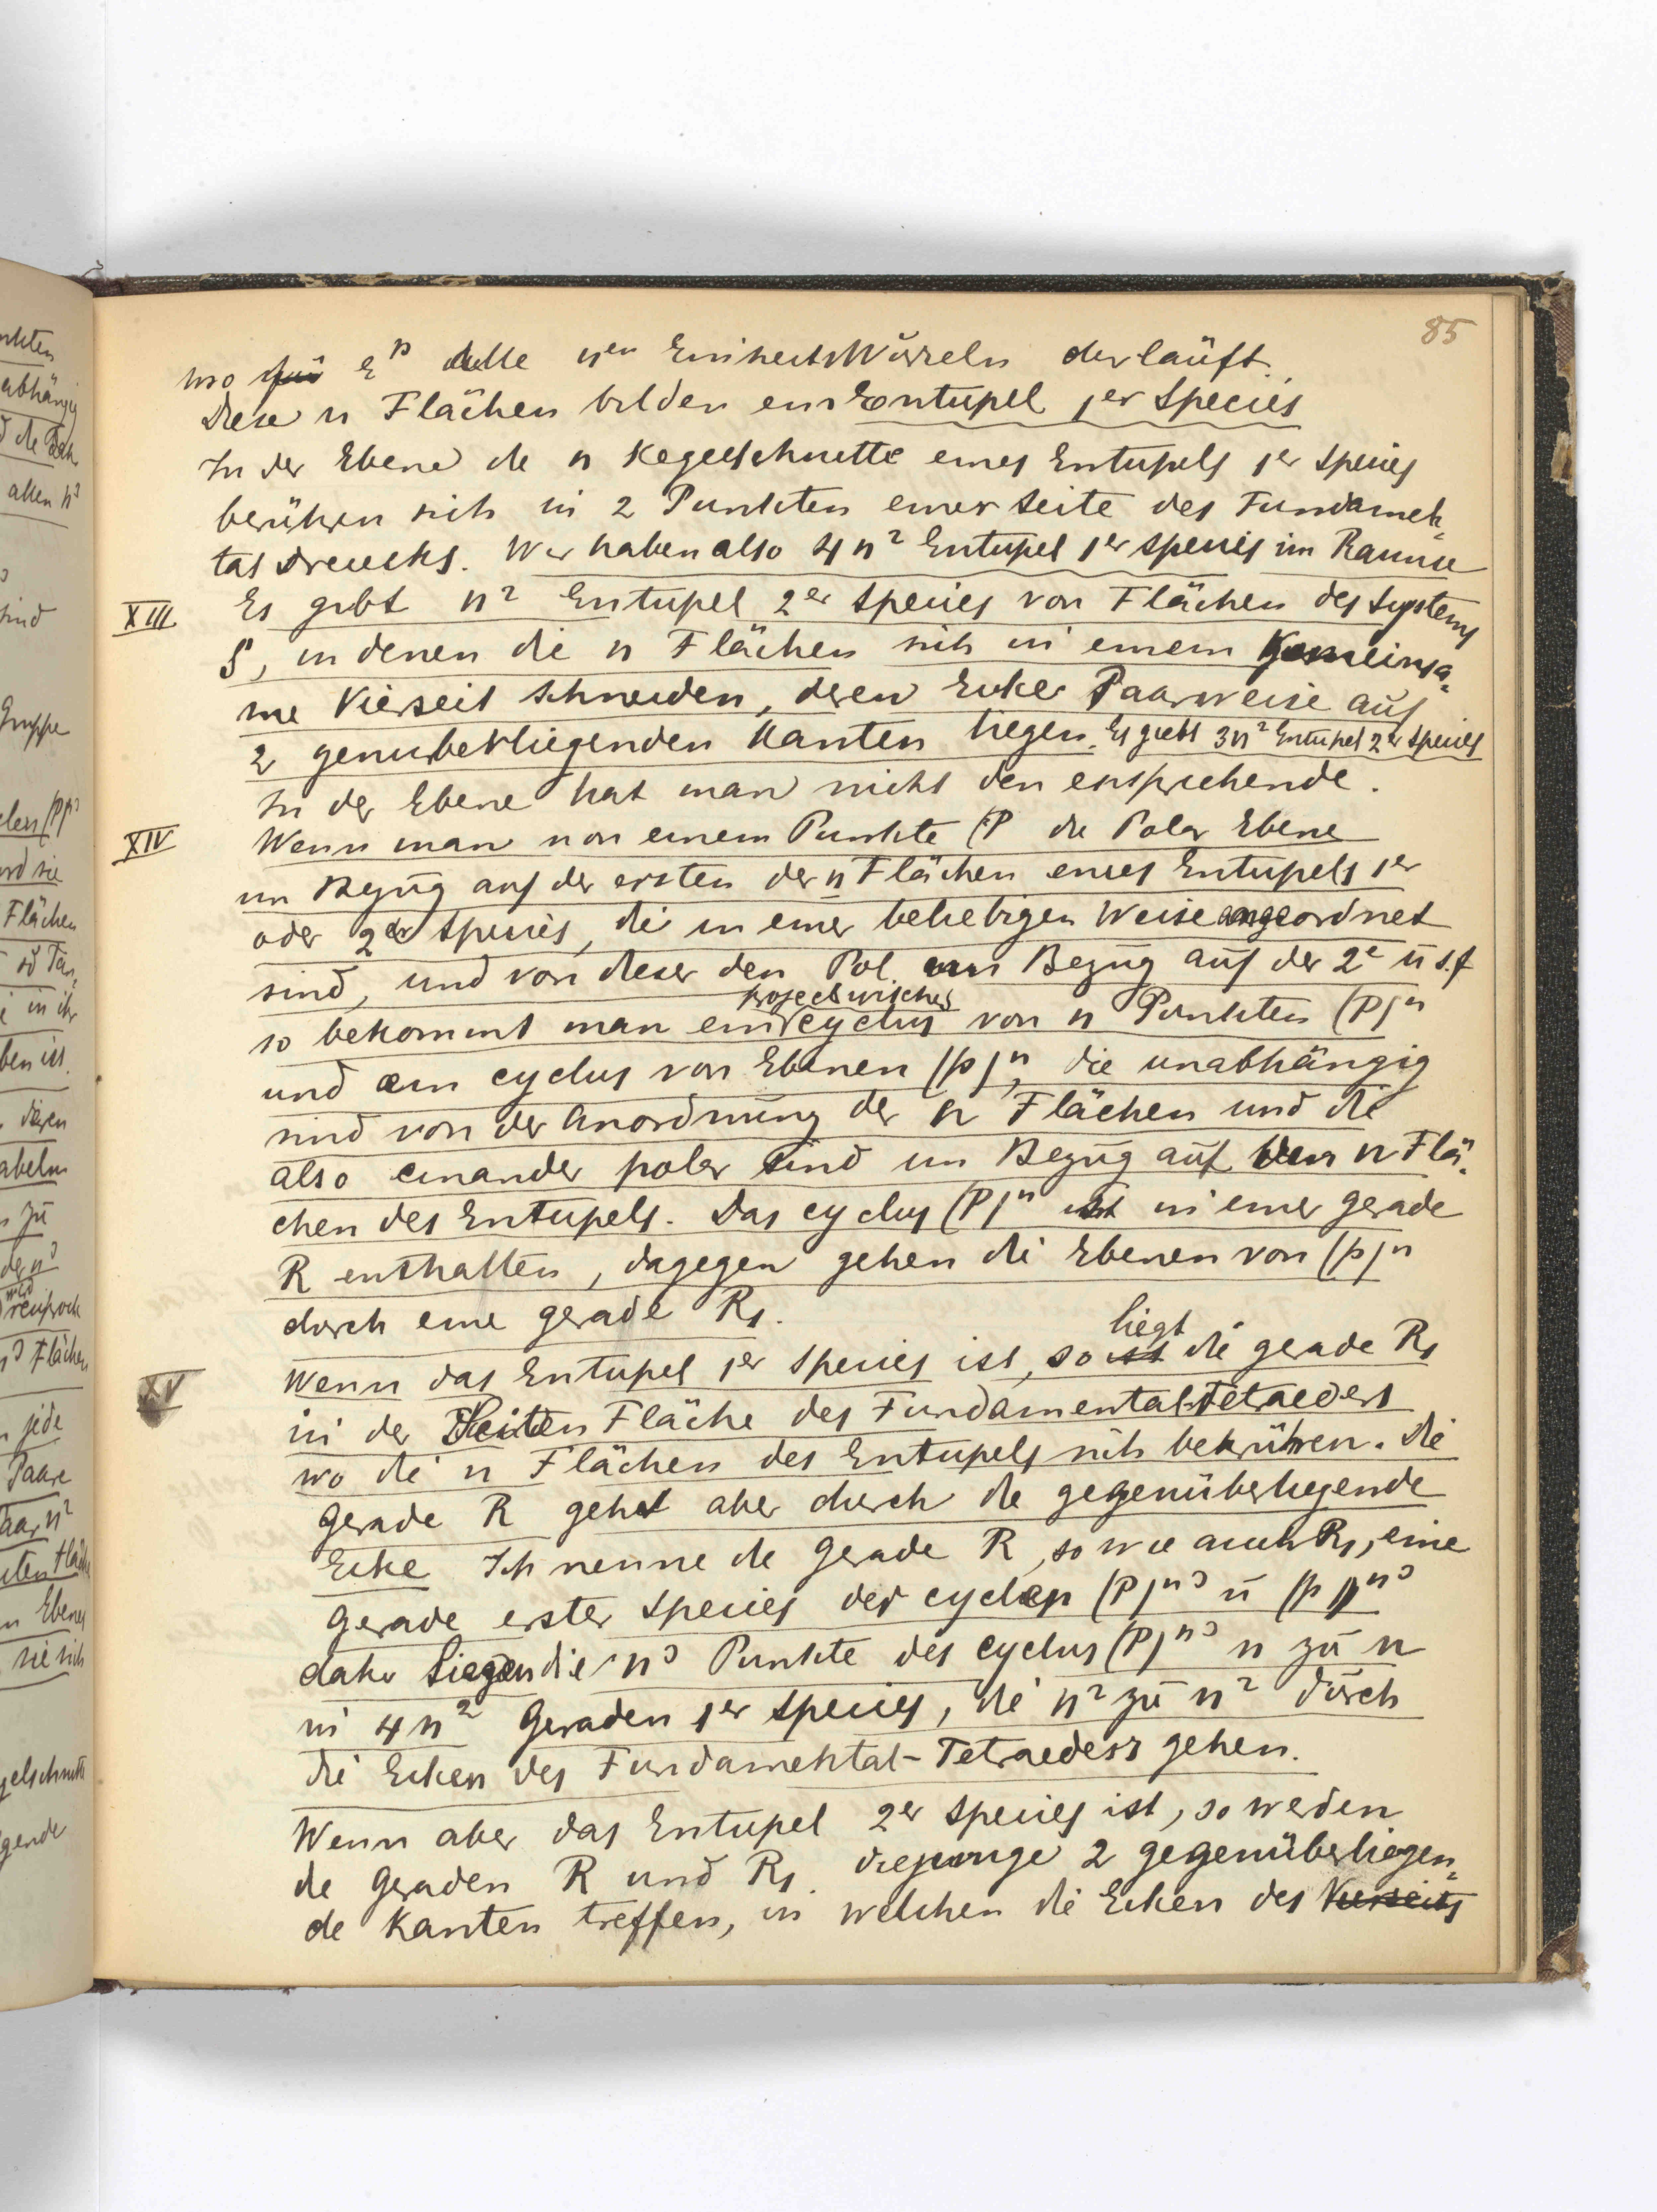 85
wo ε^p alle n^en EinheitsWürzeln derläuft.
Diese n Flächen bilden ein Entupel 1^er Species
In der Ebene de n Kegelschnitte eines Entupels 1^er Species
berühren sich in 2 Punkten einer Seite des Fundamen
tal Dreiecks. Wir haben also 4n² Entupel 1^er Species im Raume
XIII Es gibt n² Entupel 2^er Species von Flächen des Systems
S, in denen die n Flächen sich in einem gemeinsa
me Vierseit schneiden, deren Ecker Paarweise auf
2 genuberliegenden Kanten liegen. Es giebt 3n² Entupel 2^er Species
In der Ebene hat man nicht den entsprechende.
XIV Wenn man von einem Punkte P die Polar Ebene
im Bezug auf der ersten der n Flächen eines Entupels 1^er
oder 2^er Species, die in einer beliebigen Weise angeordnet
sind, und von dieser den Pol im Bezug auf der 2^e u s.f
so bekommt man ein projectivischer cyclus von n Punkten (P)^n
und ein cyclus von Ebenen (p)^n, die unabhängig
sind von der Anordnung der n Flächen und die
also einander polar sind im Bezug auf den n Flä-
chen des Entupels. Das cyclus (P)^n ist in einer gerade
R enthalten, dagegen gehen die Ebenen von (p)^n
durch eine gerade R₁.
XV Wenn das Entupel 1^er Species ist, so ist liegt die gerade R₁
in der Seiten Fläche des Fundamental Tetraeders
wo die n Flächen des Entupels sich berühren. Die
gerade R gehet aber durch die gegenüberliegende
Ecke Ich nenne de Gerade R, so wie auch R₁, eine
Gerade erster Species der cyclen (P)^n³ u (p)^n³
daher liegen die n³ Punkte des cyclus (P)^n³ n zu n
in 4n² Geraden 1^er Species, die n² zu n² durch
die Ecken des Fundamental-Tetraeders gehen.
Wenn aber das Entupel 2^er Species ist, so werden
de Geraden R und R₁ diejenige 2 gegenüberliegen-
de Kanten treffen, in welchen die Ecken des Vierseits